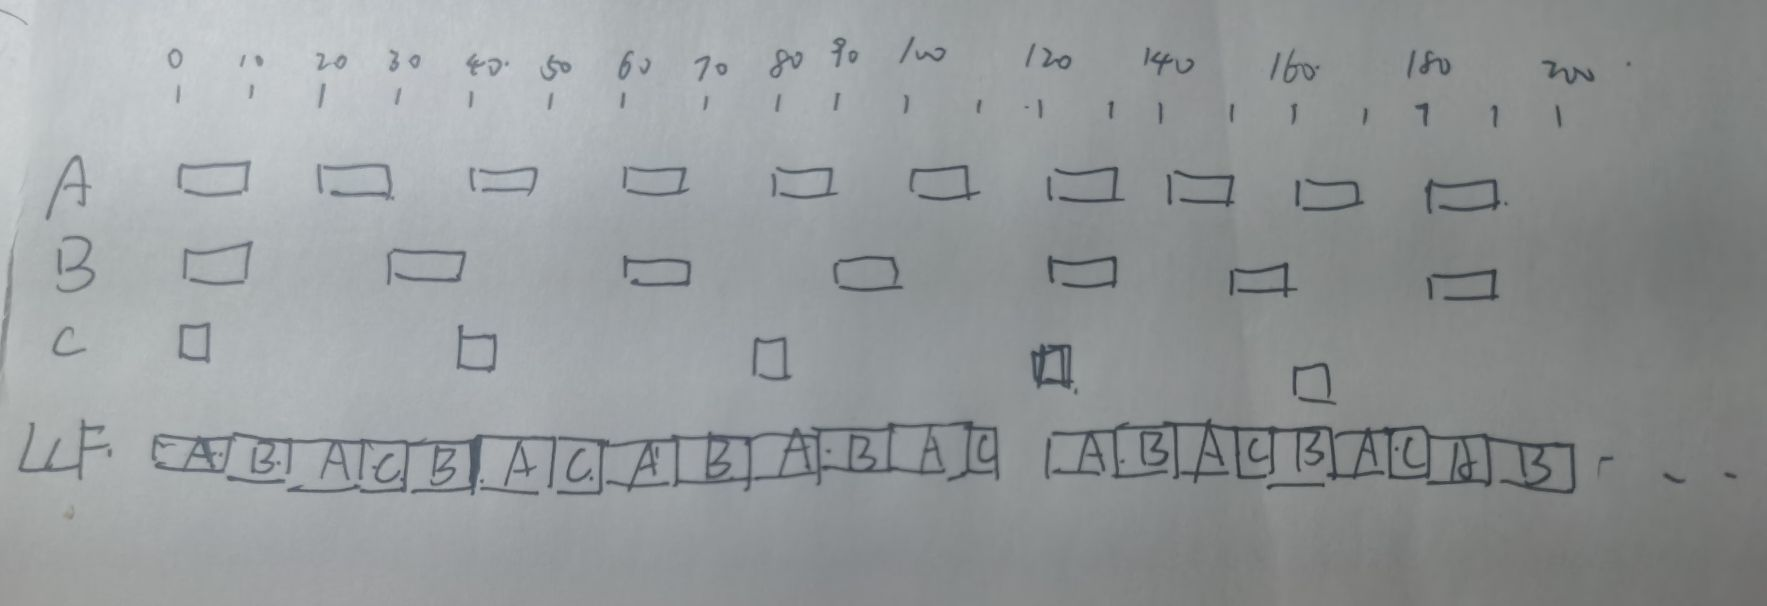 0 10 20 30 40 50 60 70 80 90 100 120 140 160 180 200
A
B
C
LLF. A B A C B A C A B A B A C A B A C B A C A B - - -